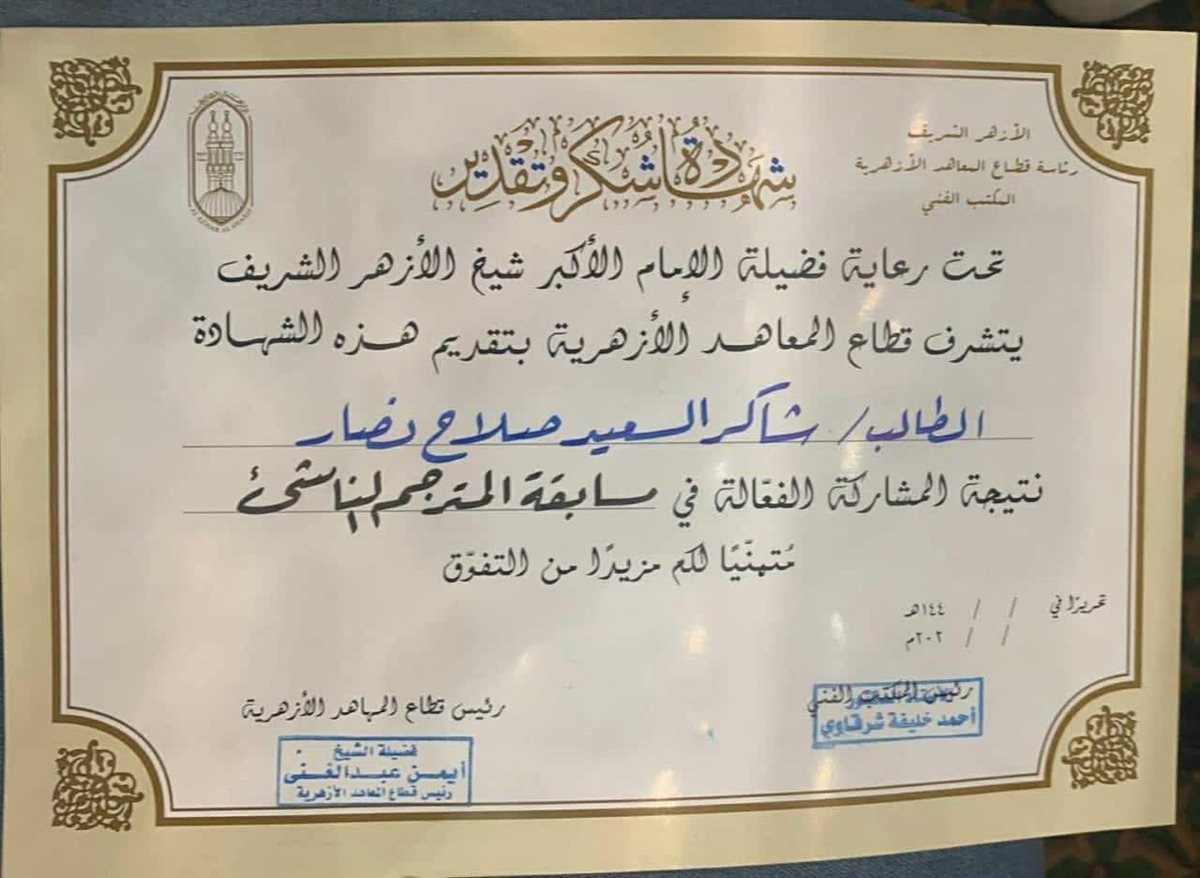 الأزهر الشريف
رئاسة قطاع المعاهد الأزهرية
المكتب الفني
AL AZHAR AL SHARIF
شهادة شكر وتقدير
تحت رعاية فضيلة الإمام الأكبر شيخ الأزهر الشريف
يتشرف قطاع المعاهد الأزهرية بتقديم هذه الشهادة
الطالب/ شاكر السعيد صلاح نصار
نتيجة المشاركة الفعّالة في مسابقة المترجم الناشئ
مُتمنّيًا لكم مزيدًا من التفوّق
تحريرًا في / / ١٤٤هـ
/ / ٢٠٢م
رئيس المكتب الفني
أحمد خليفة شرقاوي
رئيس قطاع المعاهد الأزهرية
فضيلة الشيخ
أيمن عبدالغني
رئيس قطاع المعاهد الأزهرية